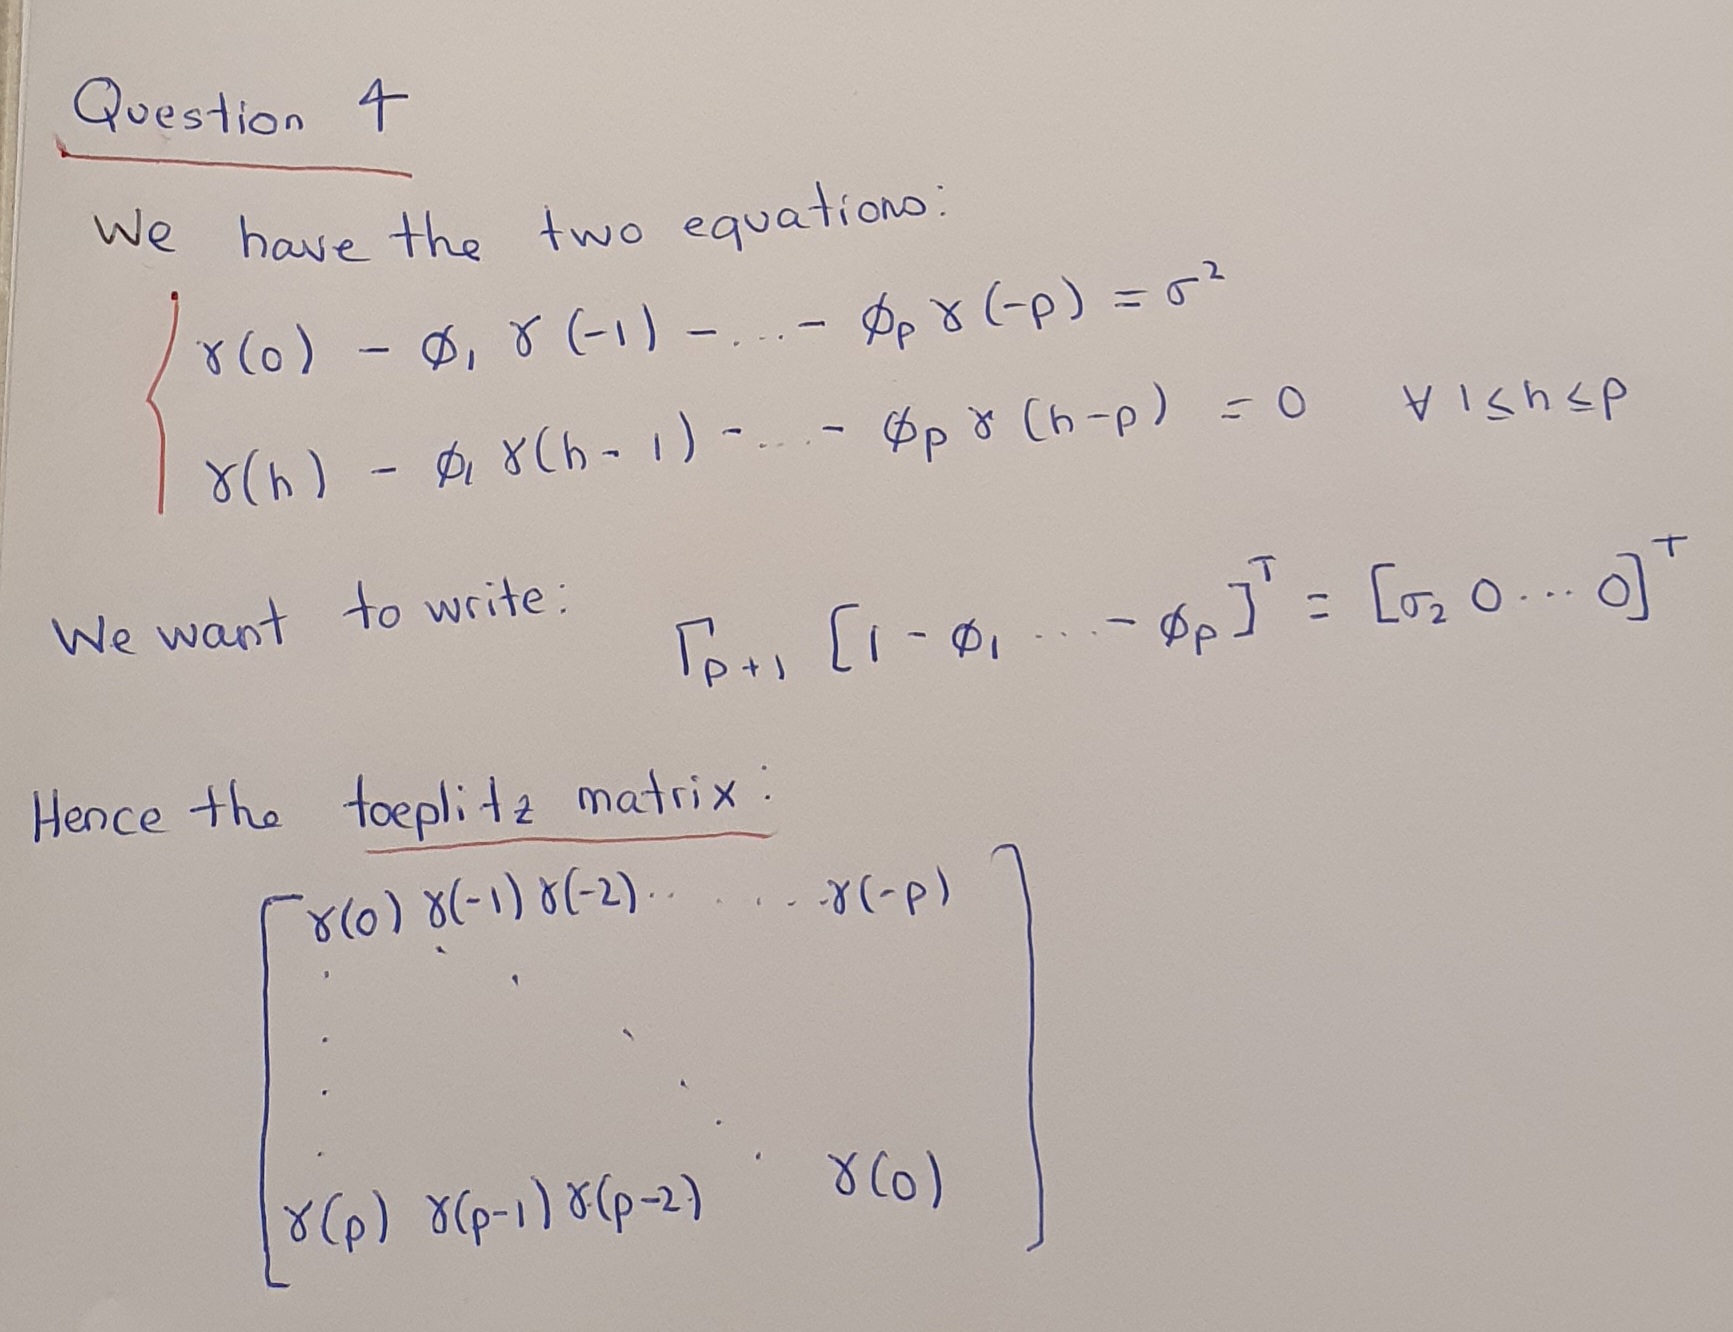 Question 4
We have the two equations:
γ(0) - ϕ₁ γ(-1) - ... - ϕₚ γ(-p) = σ²
γ(h) - ϕ₁ γ(h-1) - ... - ϕₚ γ(h-p) = 0 ∀ 1≤h≤p
We want to write: Γₚ₊₁ [1 -ϕ₁ ... -ϕₚ]ᵀ = [σ₂ 0 ... 0]ᵀ
Hence the toeplitz matrix:
[γ(0) γ(-1) γ(-2) ... ... γ(-p)]
γ(p) γ(p-1) γ(p-2) . γ(0)